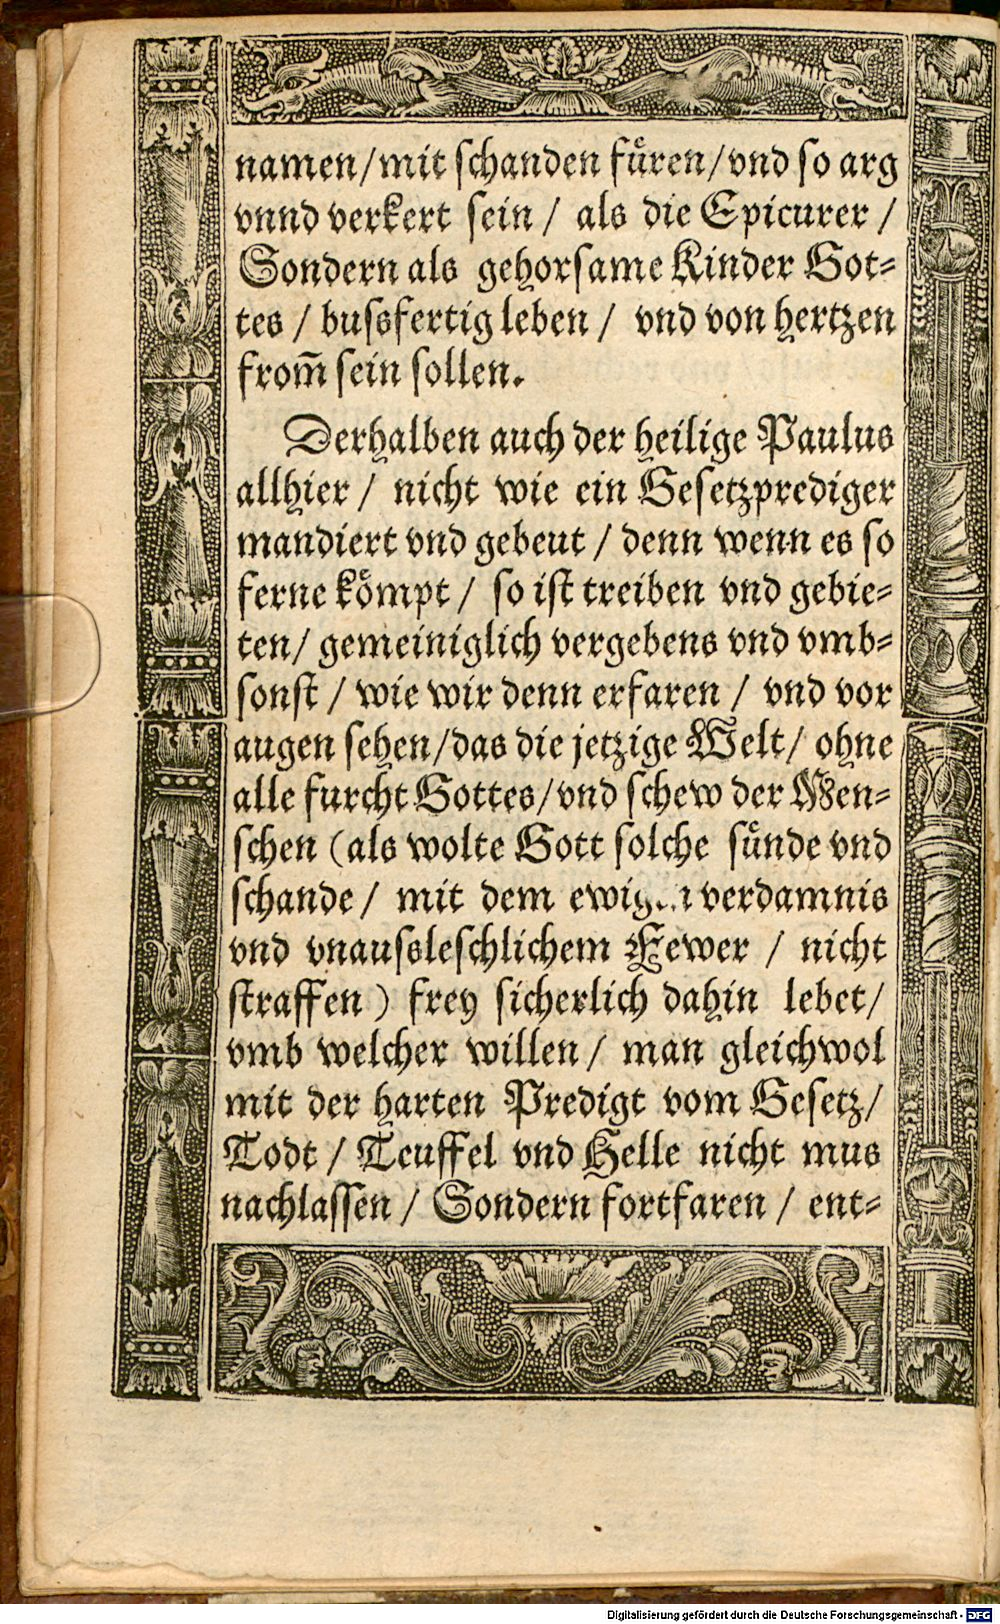 namen/mit schanden fuͤren/vnd so arg
vnnd verkert sein / als die Epicurer /
Sondern als gehorsame Kinder Got-
tes / bussfertig leben / vnd von hertzen
from̃ sein sollen.
Derhalben auch der heilige Paulus
allhier / nicht wie ein Gesetzprediger
mandiert vnd gebeut / denn wenn es so
ferne koͤmpt / so ist treiben vnd gebie-
ten/ gemeiniglich vergebens vnd vmb-
sonst / wie wir denn erfaren / vnd vor
augen sehen/das die jetzige Welt/ ohne
alle furcht Gottes/vnd schew der Men-
schen (als wolte Gott solche suͤnde vnd
schande / mit dem verdamnis
vnd vnaussleschlichem Fewer / nicht
straffen) frey sicherlich dahin lebet/
vmb welcher willen / man gleichwol
mit der harten Predigt vom Gesetz/
Todt / Teuffel vnd Helle nicht mus
nachlassen / Sondern fortfaren / ent-
Digitalisierung gefördert durch die Deutsche Forschungsgemeinschaft - DFG